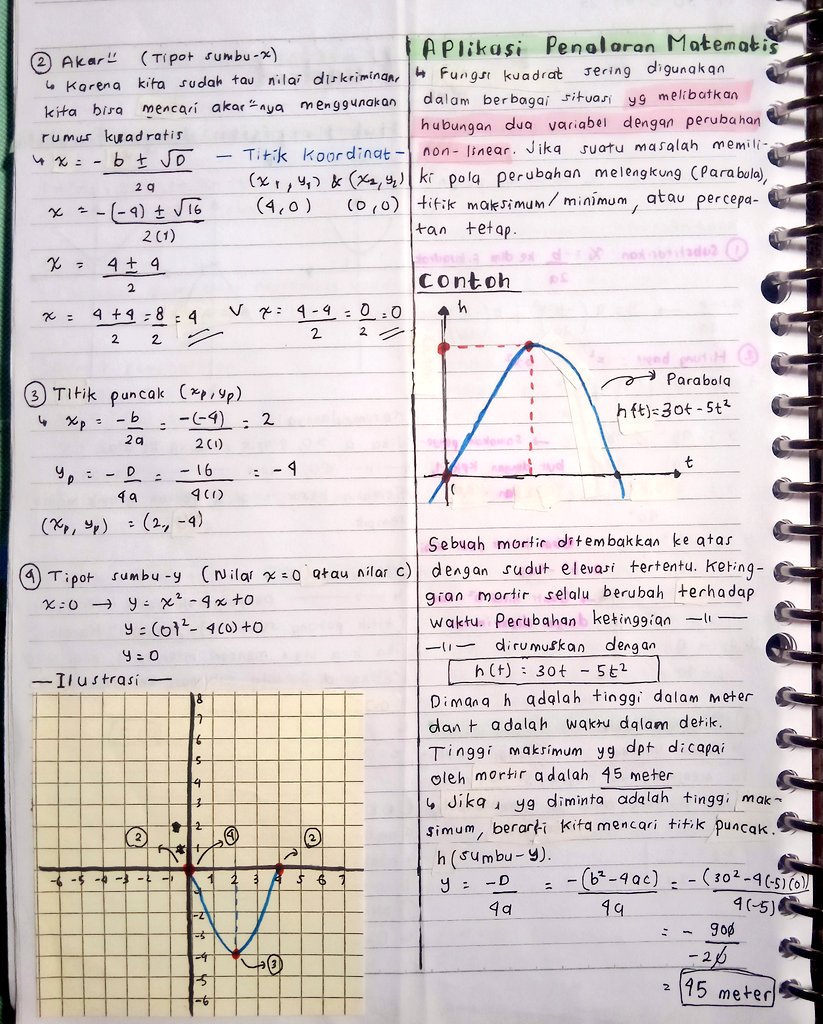 ② Akar" (Tipot sumbu-x)
↳ Karena kita sudah tau nilai diskriminan,
kita bisa mencari akar"nya menggunakan
rumus kuadratis
↳ x = -b ± √D
2a
x = -(-4) ± √16
2(1)
x = 4 ± 4
2
x = 4+4 = 8 = 4 V x = 4-4 = 0 = 0
2 2 2 2
— Titik Koordinat —
(x₁, y₁) & (x₂, y₂)
(4,0) (0,0)
③ Titik puncak (xp, yp)
↳ xp = -b = -(-4) = 2
2a 2(1)
yp = -D = -16 = -4
4a 4(1)
(xp, yp) = (2, -4)
④ Tipot sumbu-y (Nilai x=0 atau nilai c)
x=0 → y = x² - 4x+0
y = (0)² - 4(0)+0
y = 0
— Ilustrasi —
8
7
6
5
4
3
2
1
② ④ ②
-6 -5 -4 -3 -2 -1 1 2 3 4 5 6 7
-1
-2
-3
-4
③
-5
-6
Aplikasi Penalaran Matematis
↳ Fungsi kuadrat sering digunakan
dalam berbagai situasi yg melibatkan
hubungan dua variabel dengan perubahan
non-linear. Jika suatu masalah memili-
ki pola perubahan melengkung (Parabola),
titik maksimum/minimum, atau percepa-
tan tetap.
Contoh
h
Parabola
h(t)=30t-5t²
t
Sebuah mortir ditembakkan ke atas
dengan sudut elevasi tertentu. Keting-
gian mortir selalu berubah terhadap
waktu. Perubahan ketinggian —11—
—11— dirumuskan dengan
h(t) = 30t - 5t²
Dimana h adalah tinggi dalam meter
dan t adalah waktu dalam detik.
Tinggi maksimum yg dpt dicapai
oleh mortir adalah 45 meter
↳ Jika, yg diminta adalah tinggi mak-
simum, berarti kita mencari titik puncak.
h (sumbu-y).
y = -D = -(b²-4ac) = -(30²-4(-5)(0))
4a 4a 4(-5)
= - 900
-20
= 45 meter